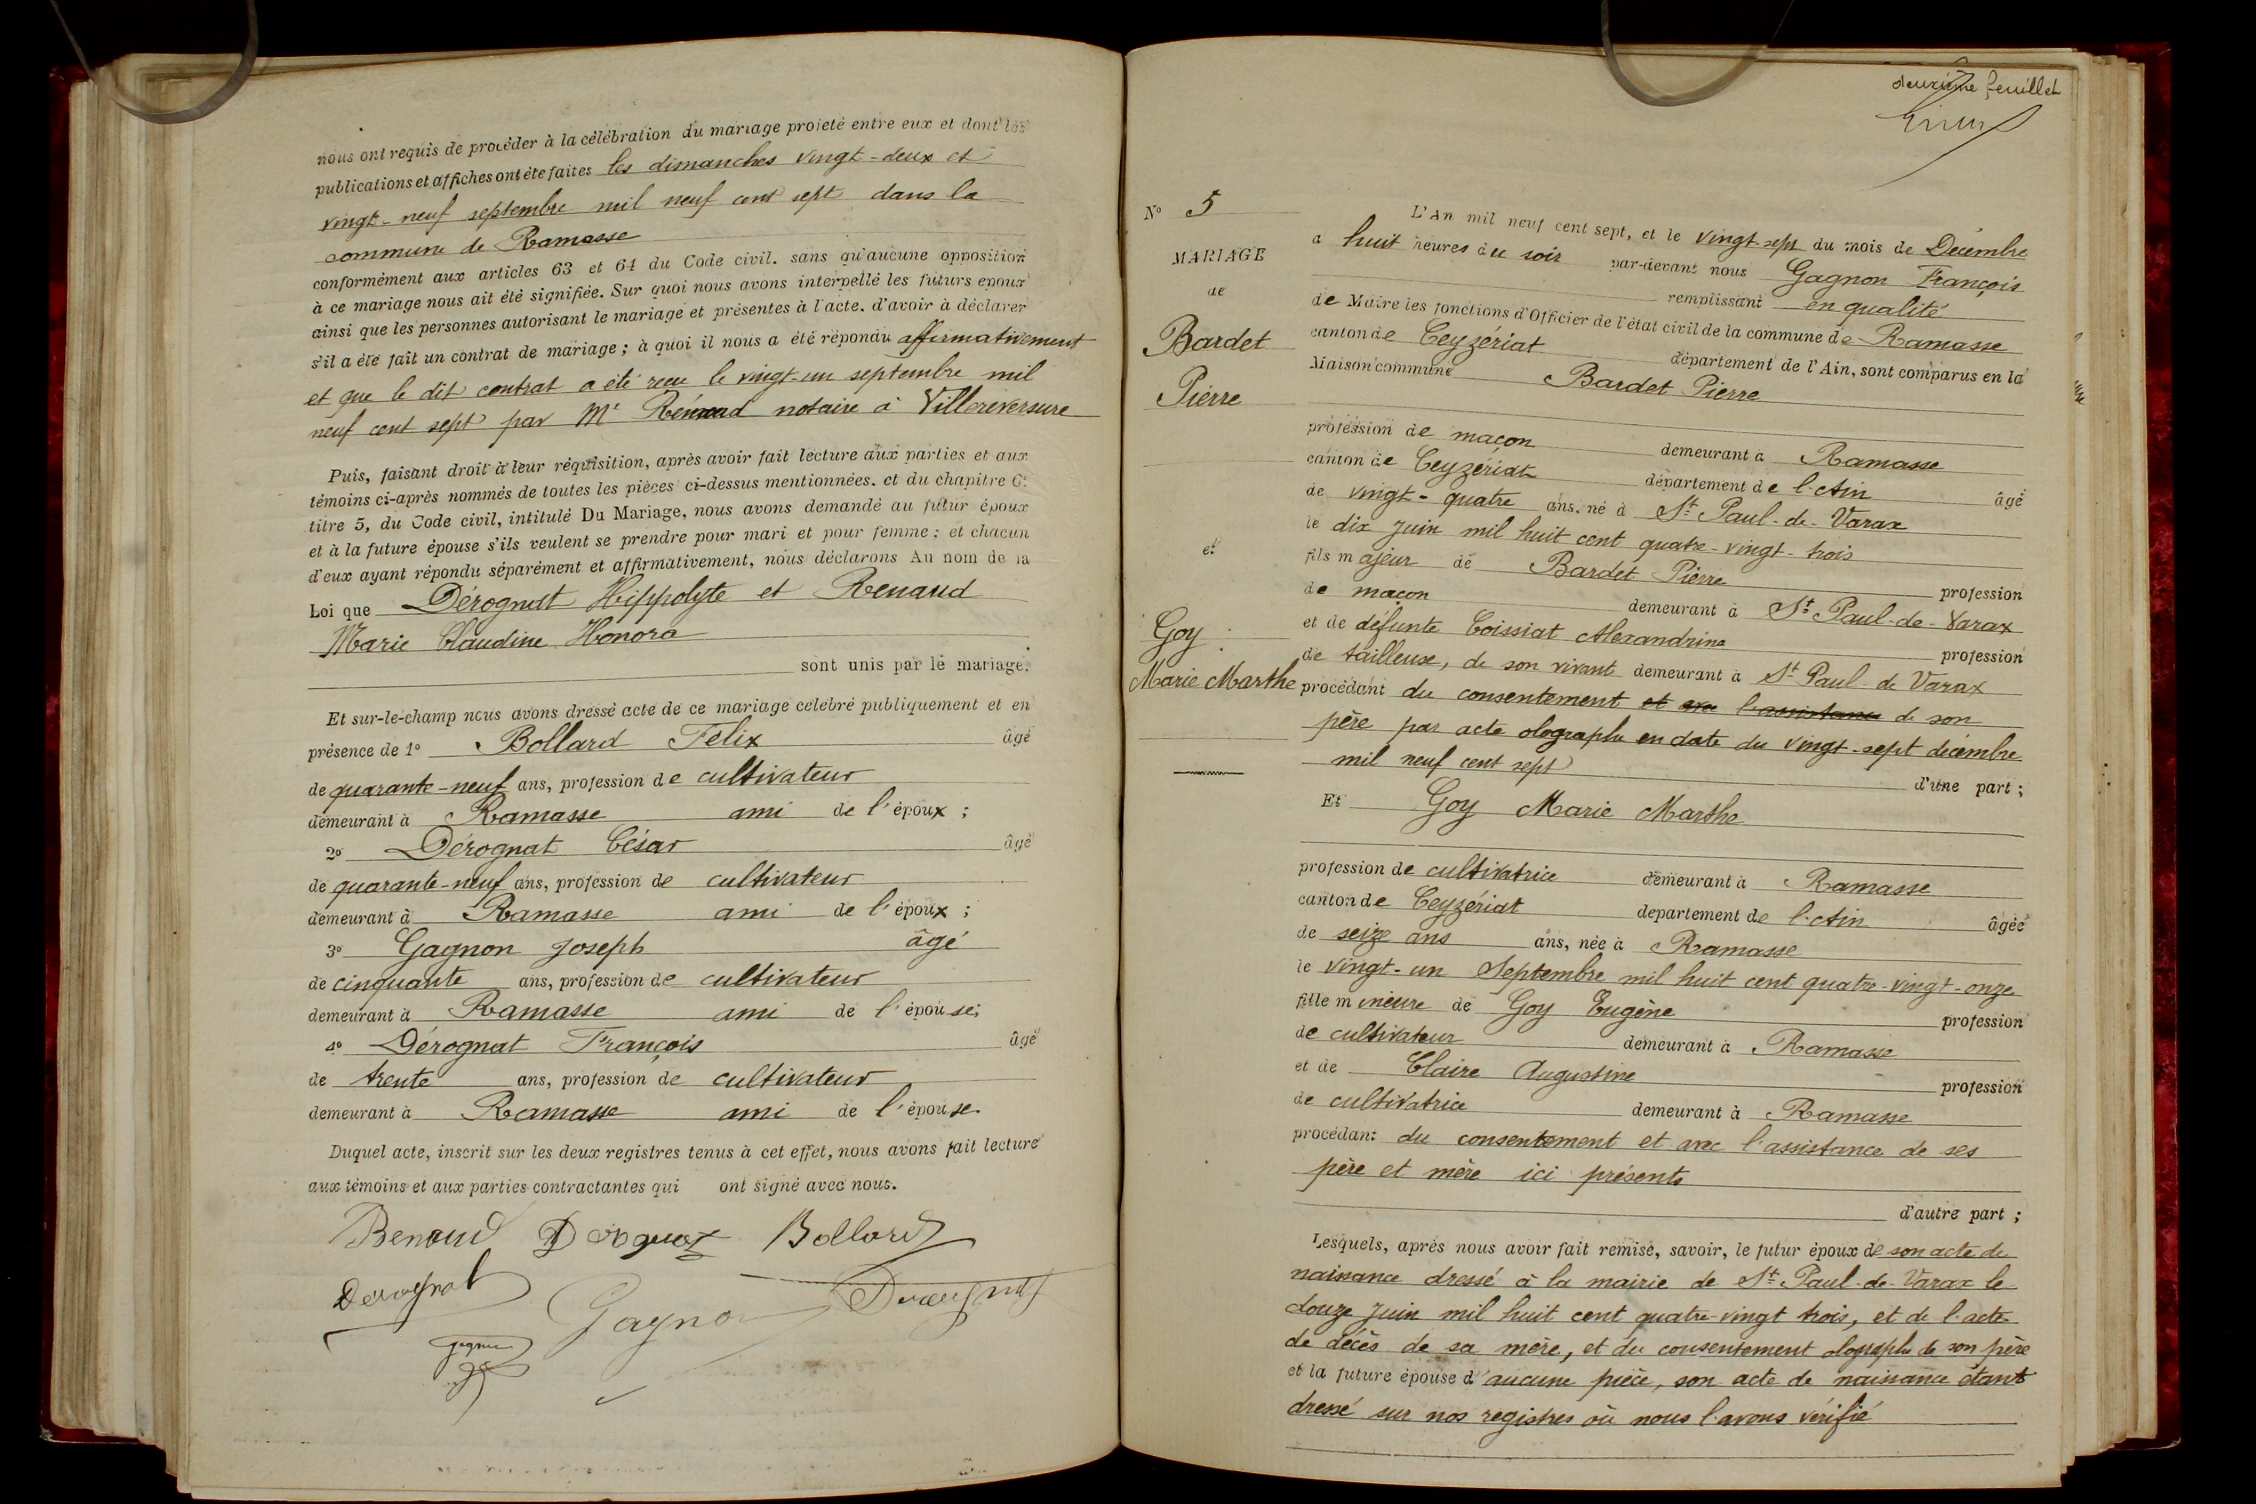 nous ont requis de procéder à la célébration du mariage projeté entre eux et dont les
publications et affiches ont été faites les dimanches vingt-deux et
vingt-neuf septembre mil neuf cent sept dans la
commune de Ramasse
conformément aux articles 63 et 64 du Code civil. sans qu'aucune opposition
à ce mariage nous ait été signifiée. Sur quoi nous avons interpellé les futurs epoux
ainsi que les personnes autorisant le mariage et présentes à l'acte. d'avoir à déclarer
s'il a été fait un contrat de mariage ; à quoi il nous a été répondu affirmativement
et que le dit contrat a été recu le vingt-un septembre mil
neuf cent sept par Me notaire à Villereversure
Puis, faisant droit à leur réquisition, après avoir fait lecture aux parties et aux
témoins ci-après nommés de toutes les pièces ci-dessus mentionnées. et du chapitre 6:
titre 5, du Code civil, intitulé Du Mariage, nous avons demandé au futur époux
et à la future épouse s'ils veulent se prendre pour mari et pour femme ; et chacun
d'eux ayant répondu séparément et affirmativement, nous déclarons Au nom de la
Loi que Dérognat Hippolyte et Renaud
Marie Claudine Honora
sont unis par le mariage.
Et sur-le-champ nous avons dressé acte de ce mariage célébré publiquement et en
présence de 1° Bollard Félix âgé
de quarante-neuf ans, profession de cultivateur
demeurant à Ramasse ami de l'époux ;
2° Dérognat César âgé
de quarante-neuf ans, profession de cultivateur
demeurant à Ramasse ami de l'époux ;
3° Gagnon Joseph âgé
de cinquante ans, profession de cultivateur
demeurant à Ramasse ami de l'épouse;
4° Dérognat François âgé
de trente ans, profession de cultivateur
demeurant à Ramasse ami de l'épouse.
Duquel acte, inscrit sur les deux registres tenus à cet effet, nous avons fait lecture
aux témoins et aux parties contractantes qui ont signé avec nous.
Renaud Derognat Bollard
Derognat Gagnon Derognat
deuxième feuillet
N° 5
MARIAGE
de
Bardet
Pierre
et
Goy
Marie Marthe
L'An mil neuf cent sept, et le vingt-sept du mois de Décembre
a huit heures du soir par-devant nous Gagnon François
remplissant en qualité
de Maire les fonctions d'Officier de l'état civil de la commune de Ramasse
canton de Ceyzériat département de l'Ain, sont comparus en la
Maison commune Bardet Pierre
profession de maçon demeurant a Ramasse
canton de Ceyzériat département de l'Ain âgé
de vingt-quatre ans. né à St Paul-de-Varax
le dix Juin mil huit cent quatre-vingt-trois
fils majeur de Bardet Pierre profession
de maçon demeurant à St Paul-de-Varax
et de défunte Coissiat Alexandrine profession
de tailleuse, de son vivant demeurant à St Paul-de Varax
procédant du consentement et ave l'assistance de son
père par acte olographe en date du vingt-sept décembre
mil neuf cent sept d'une part ;
Et Goy Marie Marthe
profession de cultivatrice demeurant à Ramasse
canton de Ceyzériat département de l'Ain âgée
de seize ans ans, née à Ramasse
le vingt-un Septembre mil huit cent quatre-vingt-onze
fille mineure de Goy Eugène profession
de cultivateur demeurant à Ramasse
et de Claire Augustine profession
de cultivatrice demeurant à Ramasse
procédant du consentement et avec l'assistance de ses
père et mère ici présents
d'autre part ;
Lesquels, après nous avoir fait remise, savoir, le futur époux de son acte de
naissance dressé à la mairie de St Paul-de-Varax le
douze Juin mil huit cent quatre-vingt trois, et de l'acte
de décès de sa mère, et du consentement olographe de son père
et la future épouse d'aucune pièce, son acte de naissance étant
dressé sur nos registres où nous l'avons vérifié